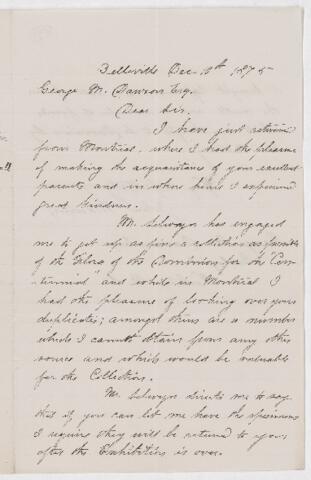 Belleville Dec. 1875
George M. Dawson Esq.
Dear Sir.
I have just returned
from Montreal, where I had the pleasure
of making the acquaintance of your excellent
parents and in whose house I experienced
great kindness.
Mr. Selwyn has engaged
me to get up as fine a collection as possible
of the Flora of the Dominion for the "Cen-
tennial" and while in Montreal I
had the pleasure of looking over your
duplicates; amongst them are a number
which I cannot obtain from any other
source and which would be valuable
for the Collection.
Mr. Selwyn directs me to say
that if you can let me have the specimens
I require they will be returned to you
after the Exhibition is over.